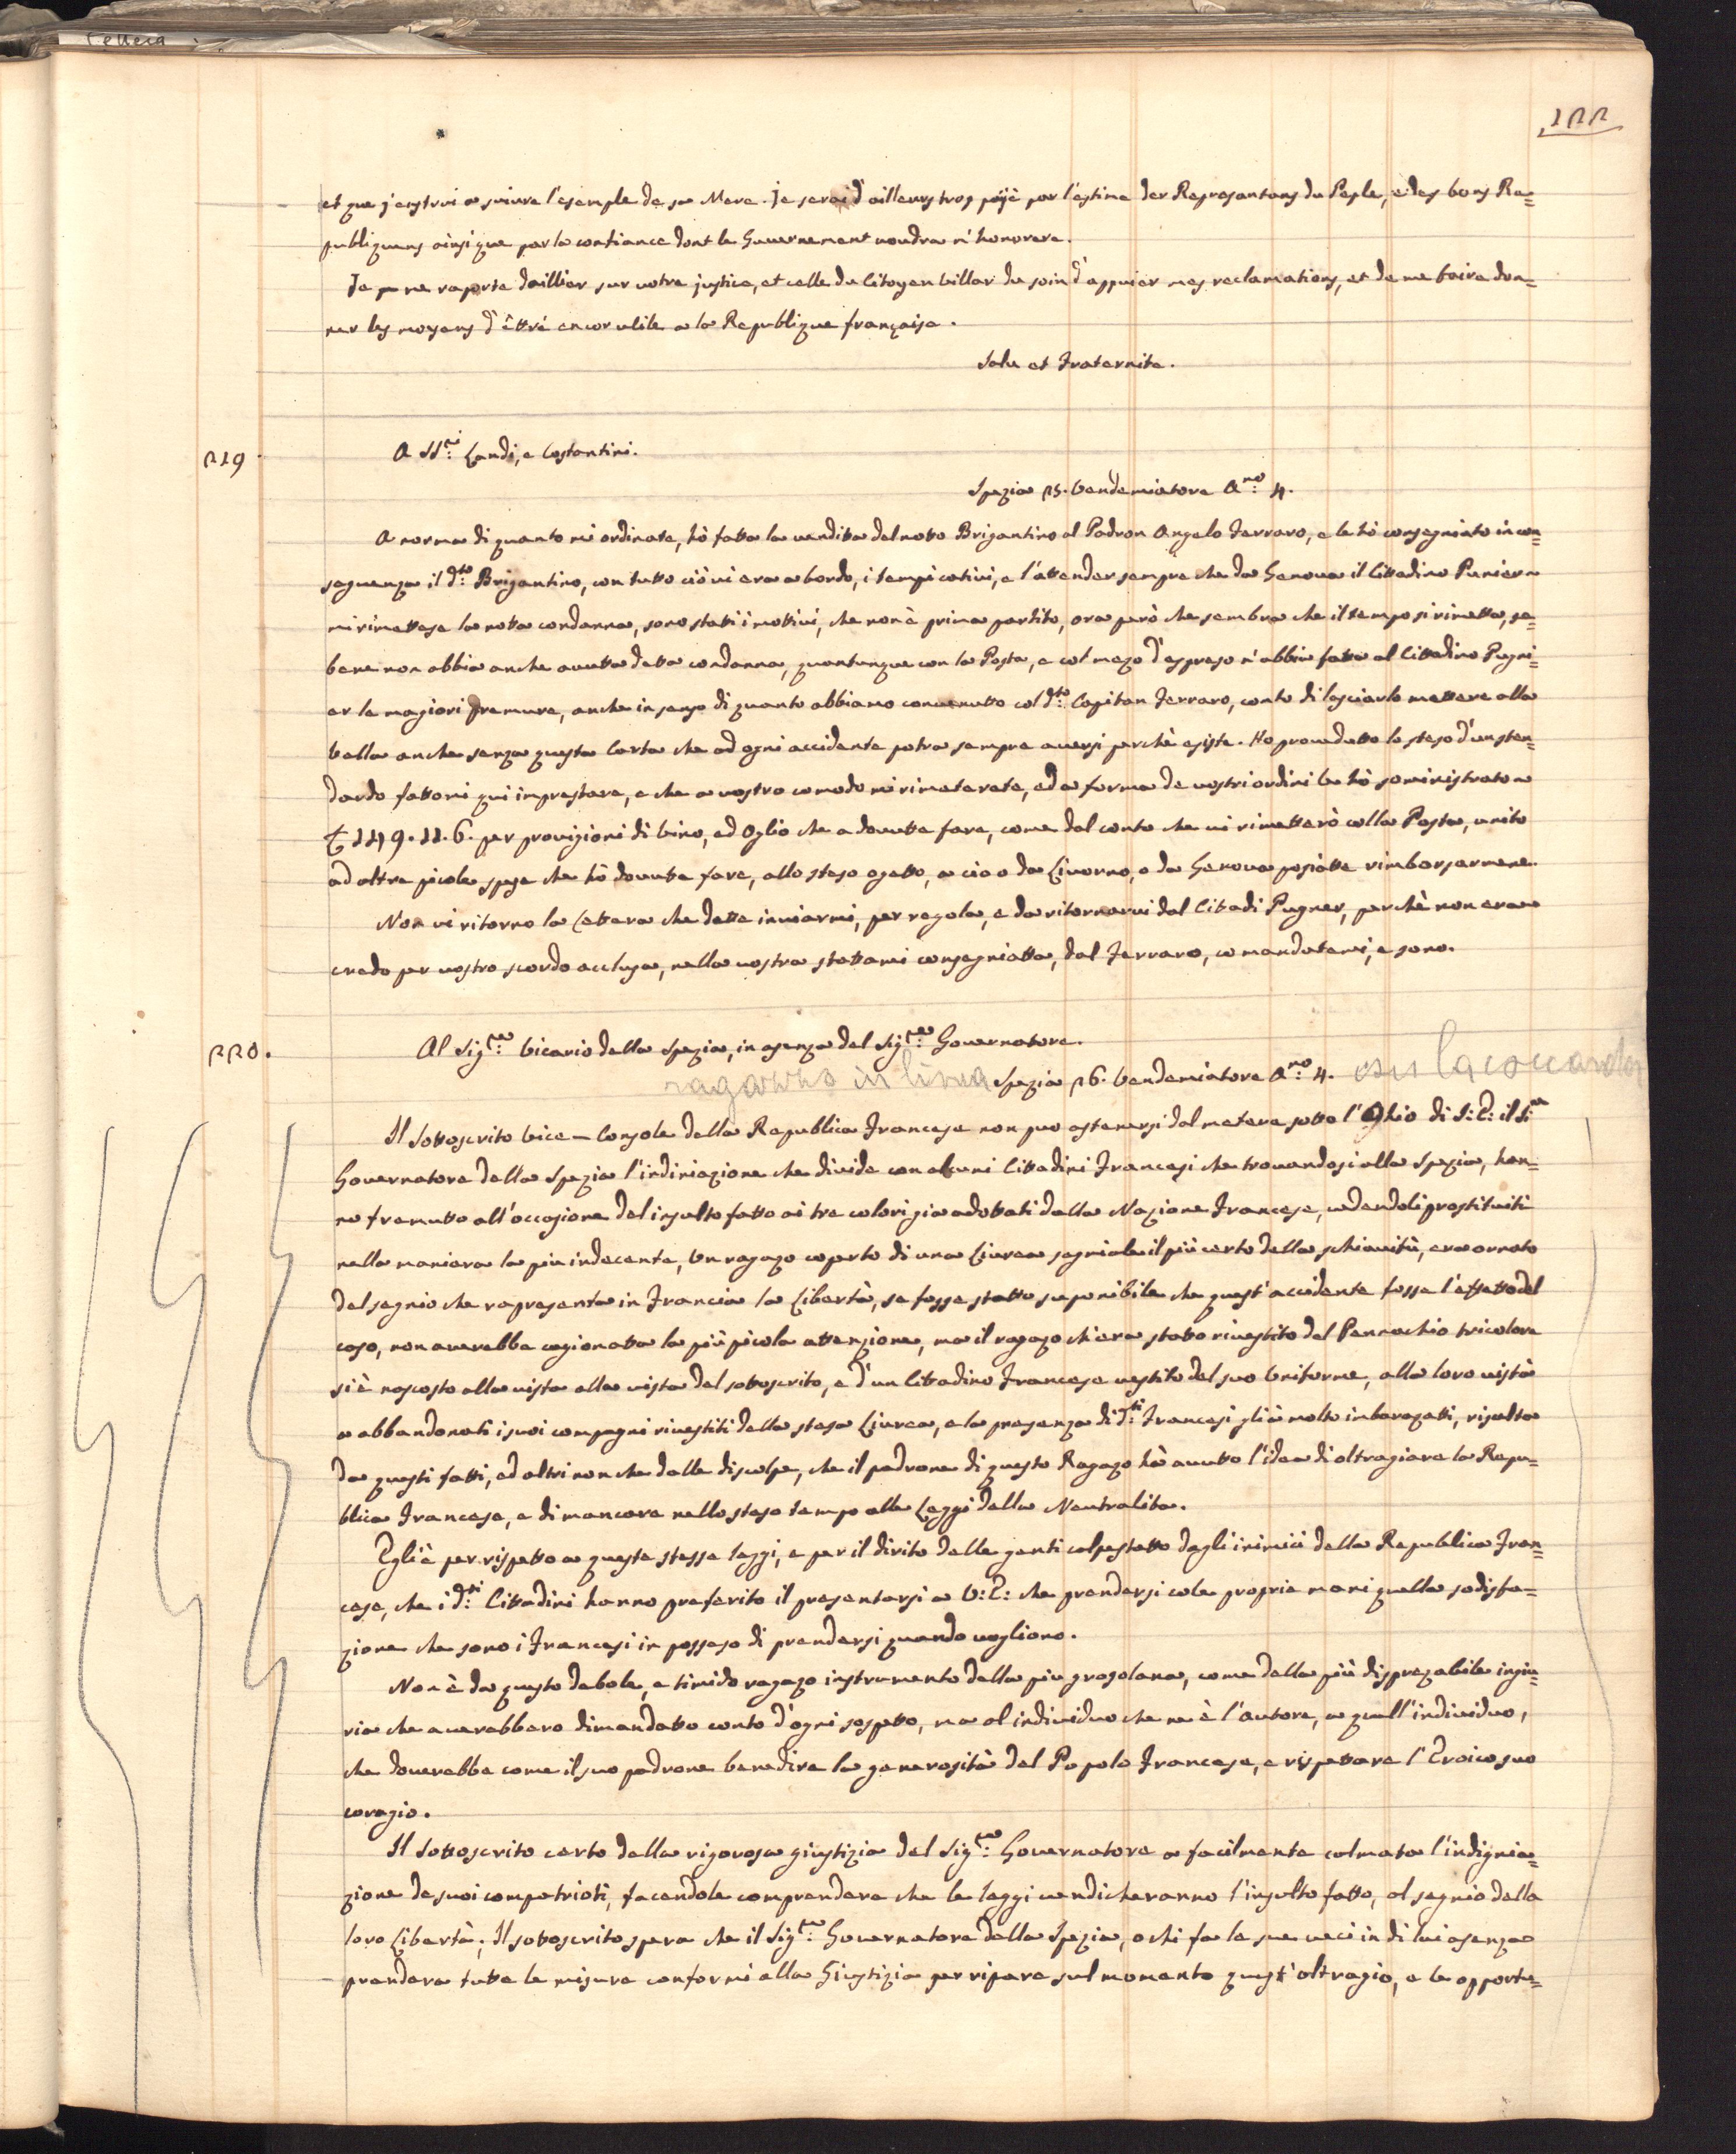 122
et que j'enstrui a suivre l'esemple de sa Mere. Je serai d'ailleurs trop pajè par l'estime der Represantans du Peple, e des bons Re=
publiquens ainsi que par la confiance dont le Gouvernement voudra m'honorere.
Je me raporte daillier sur votre justice, et celle du Citoyen Villar du soin d'appuier mes reclamations, et de me faire don=
ner les moyens d'êttre encor utile a la Republique française.
Salu et Fraternite.
219
A SS.ri Landi, e Costantini.
Spezia 25. Vendemiatore A.no 4.
A norma di quanto mi ordinate, hò fatta la vendita del noto Brigantino al Padron Angelo Ferraro, e le hò consegniato in con=
seguenza il d.to Brigantino, con tutto ciò vi era a bordo, i tempi cativi, e l'attender sempre che da Genova il Cittadino Punier
mi rimettese la nota condanna, sono stati i mottivi, che non è prima partito, ora però che sembra che il tempo si rimetta, se=
bene non abbia anche avutta detta condanna, quantunque con la Posta, e col mezo d'espreso n'abbia fatta al Cittadino Pugni=
er le magiori premure, anche in senso di quanto abbiamo convenutto col d.to Capitan Ferraro, conto di lasciarlo mettere alla
Vella anche senza questa Carta che ad ogni accidente potra sempre aversi perchè esiste. Ho provedutto lo steso d'un sten=
dardo fattomi qui imprestare, e che a vostro comodo mi rimeterete, ed a forma de vostri ordini le hò soministrato
£ 1149.11.6. per provizioni di Vino, ed Oglio che a dovutte fare, come dal conto che vi rimetterò colla Posta, unito
ad altre picole spese che hò dovute fare, allo steso ogetto, a cio o da Livorno, o da Genova posiatte rimborsarmene.
Non vi ritorno la Lettera che dette inviarmi, per regola, e da ritornarvi dal Citadi Pugner, perchè non era
credo per vostro scordo acclusa, nella vostra stattami consegniatta, dal Ferraro, comandatemi, e sono.
220.
Al Sig.re Vicario della Spezia, in asenza del Sig.re Governatore.
ragazzo in livrea Spezia 26. Vendemiatore A.no 4. con la coccarda
Il Sottoscrito Vice-Console della Republica Francese non puo astenersi dal metere sotto l'Ochio di S: E: il S.r
Governatore della Spezia l'indiniazione che divide con alcuni Cittadini Francesi che trovandosi alla Spezia, han=
no fremutto all'occasione del insulto fatto ai tre colori gia adottati dalla Nazione Francese, vedendoli prostituiti
nella maniera la piu indecente, Un ragazo coperto di una Livrea segniale il più certo della schiavitù, era ornato
del segnio che rapresenta in Francia la Libertà, se fosse statto suponibile che quest'accidente fosse l'effetto del
caso, non averebbe cagionatta la più picola attenzione, ma il ragazo ch'era statto rivestito del Pennachio tricolore
si è nascosto alla vista alla vista del sottoscrito, e d'un Cittadino Francese vestito del suo Uniforme, alla loro vistà
a abbandonati i suoi compagni rivestiti della stesa Livrea, e la presenza di d.ti Francesi gli à molto imbarazatti, risulta
da questi fatti, ed altri non che dalle discolpe, che il padrone di questo Ragazo hà avutto l'idea di oltragiare la Repu=
blica Francese, e di mancare nello steso tempo alle Leggi della Neutralita.
Egli è per rispetto a queste stesse leggi, e per il dirito delle genti calpestatto dagli inimici della Republica Fran=
cese, che i d.ti Cittadini hanno preferito il presentarsi a V: E: che prendersi cole proprie mani quella sodisfa=
zione che sono i Francesi in possesso di prendersi quando vogliono.
Non è da questo debole, e timido ragazo instrumento della piu grosolana, come della più disprezabile ingiu=
ria che averebbero dimandatto conto d'ogni sospetto, ma al individuo che ne è l'autore, a quell'individuo,
che doverebbe come il suo padrone benedire la generosità del Popolo Francese, e rispettare l'Eroico suo
coragio.
Il Sottoscrito certo della rigorosa giustizia del Sig.re Governatore a facilmente calmata l'indignia=
zione de suoi compatrioti, facendole comprendere che le leggi vendicheranno l'insulto fatto, al segnio della
loro Libertà. Il sottoscrito spera che il Sig.re Governatore della Spezia, o chi fa le sue veci in di lui asenza
prendera tutte le misure conformi alla Giustizia per ripare sul momento quest'oltragio, e le opportu=